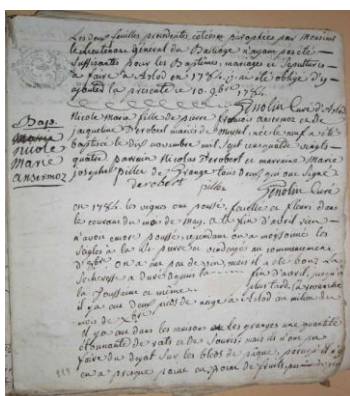 Les deux feuilles précedentes cotées et paraphées par Monsieur
le Lieutenant Général du Bailliage n'ayant pas été
suffisantes pour les Baptêmes, mariages et sépultures
à faire à Arlod en 1784 j'ai été obligé d'y
ajouter la présente ce 10 9bre 1784.
Genolin Curé d'Arlod
Bap.
nicole
marie
ansermoz
Nicole Marie fille de pierre françois ansermoz et de
jacqueline Derobert mariés de Musel, née le neuf a été
baptisée le dix novembre mil sept cent quatre vingts
quatre parrain Nicolas Derobert et marraine Marie
josephte pillez de Grange tous deux qui ont signé
derobert pillez Genolin Curé
en 1784. les vignes ont poussé feuilles et fleurs dans
le courant du mois de may. à la fin d'avril rien
n'avoit encore poussé cependant on a moissonné les
seigles à la St pierre on vendangé au commencement
d'8bre on a eu peu de vin, mais il a été bon. La
secheresse a duré depuis la fin d'avril, jusqu'à
la Toussaint et même plus tard.
il y a eu deux pieds de neige à Arlod au milieu du
mois de Xbre
il y a eu dans les maisons et les granges une quantité
étonnante de rats et de souris, mais ils n'ont pu
faire du dégat sur les bleds
en a presque point eu, point de fruits,